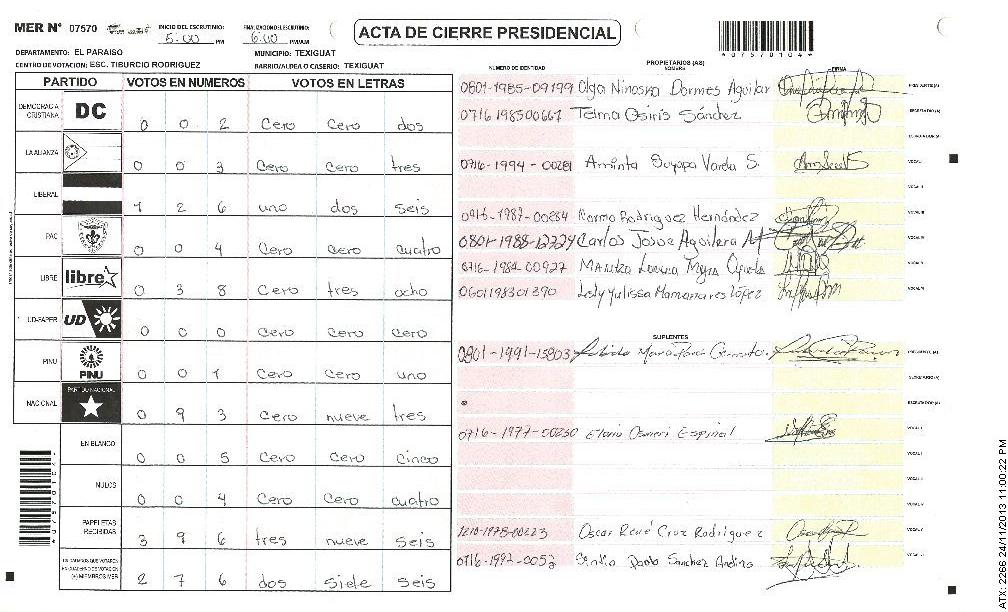 MER N° 07570
INICIO DEL ESCRUTINIO: 5:00 PM
FINALIZACION DEL ESCRUTINIO: 6:00 PM/AM
ACTA DE CIERRE PRESIDENCIAL
DEPARTAMENTO: EL PARAISO
MUNICIPIO: TEXIGUAT
CENTRO DE VOTACION: ESC. TIBURCIO RODRIGUEZ
BARRIO/ALDEA O CASERIO: TEXIGUAT
PARTIDO VOTOS EN NUMEROS VOTOS EN LETRAS
DEMOCRACIA CRISTIANA DC 0 0 2 Cero Cero dos
LA ALIANZA 0 0 3 Cero Cero tres
LIBERAL 1 2 6 uno dos seis
PAC 0 0 4 Cero Cero cuatro
LIBRE libre 0 3 8 Cero tres ocho
UD-FAPER UD 0 0 0 Cero Cero Cero
PINU PINU 0 0 1 Cero Cero uno
NACIONAL PARTIDO NACIONAL 0 9 3 Cero nueve tres
EN BLANCO 0 0 5 Cero Cero Cinco
NULOS 0 0 4 Cero Cero cuatro
PAPELETAS RECIBIDAS 3 9 6 tres nueve seis
CIUDADANOS QUE VOTARON EN CUADERNO DE VOTACION (+) MIEMBROS MER 2 7 6 dos siete seis
NUMERO DE IDENTIDAD
PROPIETARIOS (AS)
NOMBRE
FIRMA
0801-1985-09199 Olga Ninoska Dormes Aguilar
0716198500667 Telma Osiris Sández
SECRETARIO (A)
ESCRUTADOR (A)
0716-1994-00281 Aminta Suyapa Varela S.
VOCAL I
VOCAL II
0716-1987-00284 Norma Rodriguez Hernández
VOCAL III
0801-1988-12724 Carlos Josue Aguilera
VOCAL IV
0716-1984-00927 Maritza
VOCAL V
0601198301390 Lesly Yulissa Mamanares López
VOCAL VI
SUPLENTES
0801-1991-15803
SECRETARIO (A)
ESCRUTADOR (A)
0716-1977-00230 Osmeri Espinal
VOCAL I
1210-1975-00223 Oscar René Cruz Rodriguez
0716-1992-0052 Paola Sanchez Andino
*0757010*
ATX: 2266 24/11/2013 11:00:22 PM